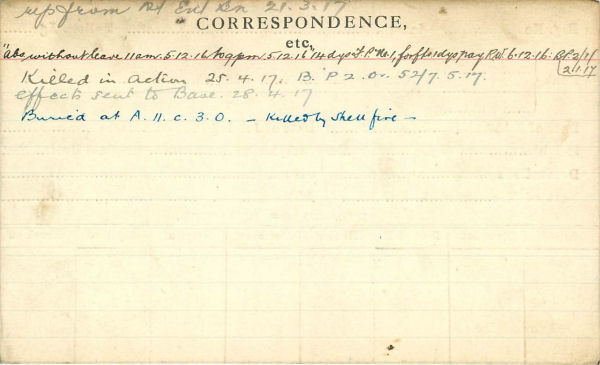 rep from Rf Ent Bn 21.3.17
CORRESPONDENCE,
etc.
"Abs without leave 11am. 5.12.16 to 9pm. 5.12.16" 14 dys F.P. No.1, forfts 1 dys pay R.W. 6.12.16. B.P. 2/1/
2.1.17
Killed in action 25.4.17. B. P 2. Or. 52/7.5.17.
effects sent to Base. 28.4.17
Buried at A.11.c.3.0. – Killed by shell fire –